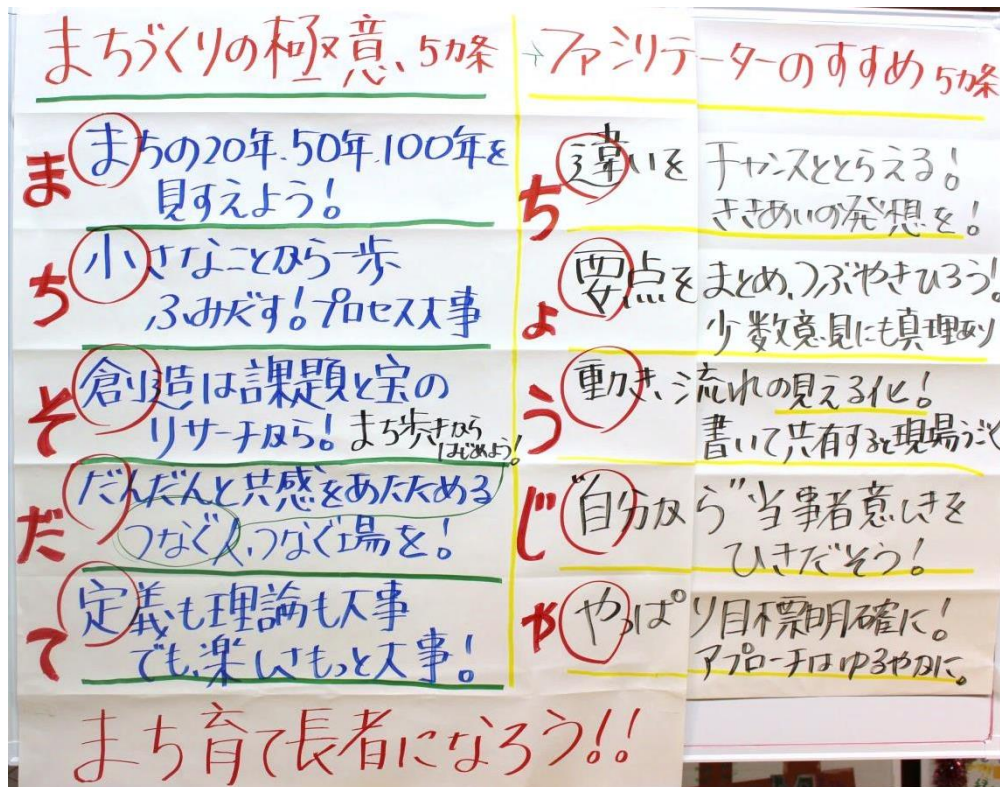 まちづくりの極意、5カ条
ま
まちの20年、50年、100年を
見すえよう!
ち
小さなことから一歩
ふみだす!プロセス大事
そ
創造は課題と宝の
リサーチから!まち歩きから
はじめよう!
だ
だんだんと共感をあたためる
つなぐ人、つなぐ場を!
て
定義も理論も大事
でも、楽しさもっと大事!
→ファシリテーターのすすめ5カ条
ち
違いをチャンスととらえる!
ささあいの発想を!
ょ
要点をまとめ、つぶやきひろう!
少数意見にも真理あり
う
動き、流れの見える化!
書いて共有すると現場うごく
じ
"自分から"当事者意しきを
ひきだそう!
や
やっぱり目標明確に!
アプローチはゆるやかに。
まち育て長者になろう!!